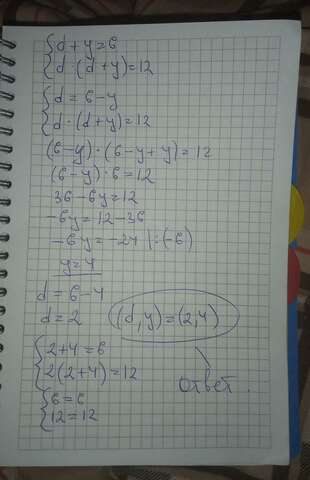 {d+y=6
{d·(d+y)=12
{d=6-y
{d·(d+y)=12
(6-y)·(6-y+y)=12
(6-y)·6=12
36-6y=12
-6y=12-36
-6y=-24 |:(-6)
y=4
d=6-4
d=2
(d,y)=(2,4)
{2+4=6
{2(2+4)=12
ответ
{6=6
{12=12